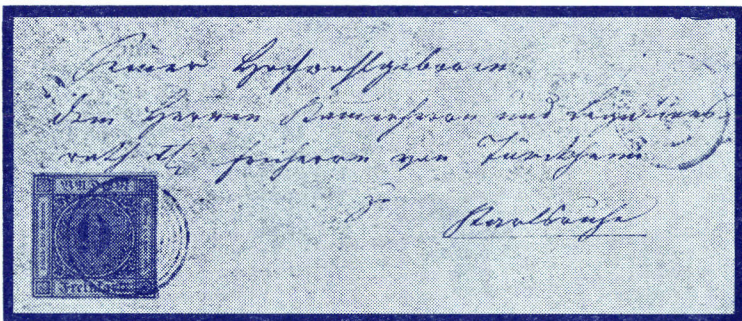 Seiner Hochwohlgeboren
dem Herren Kamerherrn und Legations-
rath Freiherrn von Türckheim
Karlsruhe
BADEN
9
Freimarke